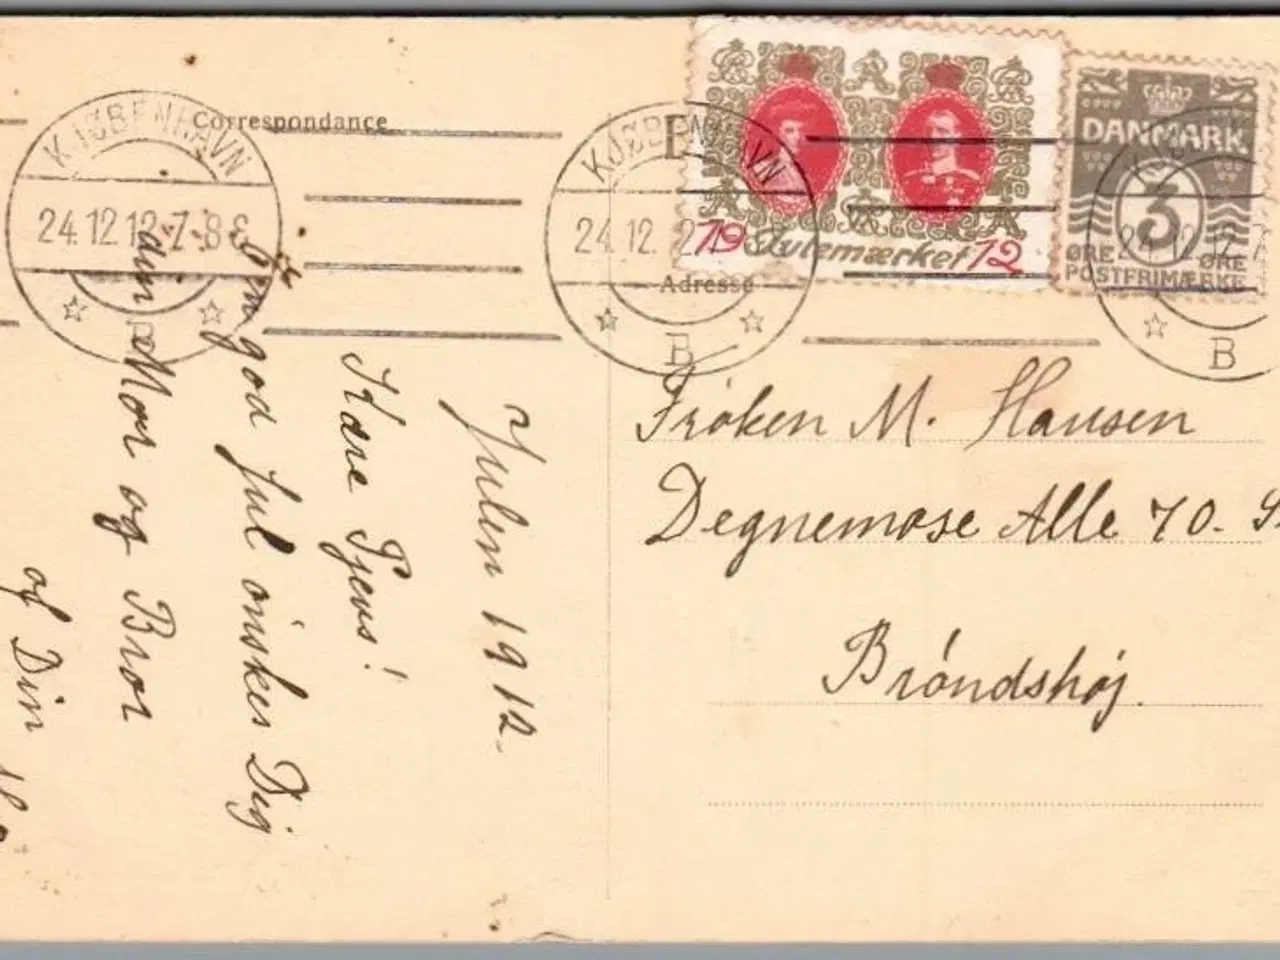 Correspondance
KJØBENHAVN
24.12.12.7-8E
B
KJØBENHAVN
24.12.
B
1912
Julemærket
DANMARK
3
ØRE ØRE
POSTFRIMÆRKE
24.12.12.7
B
Adresse
Julen 1912.
Kære
En god Jul ønskes Dig
din Mor og Bror
af Din
Frøken M. Hansen
Degnemose Alle 70.
Brøndshøj.